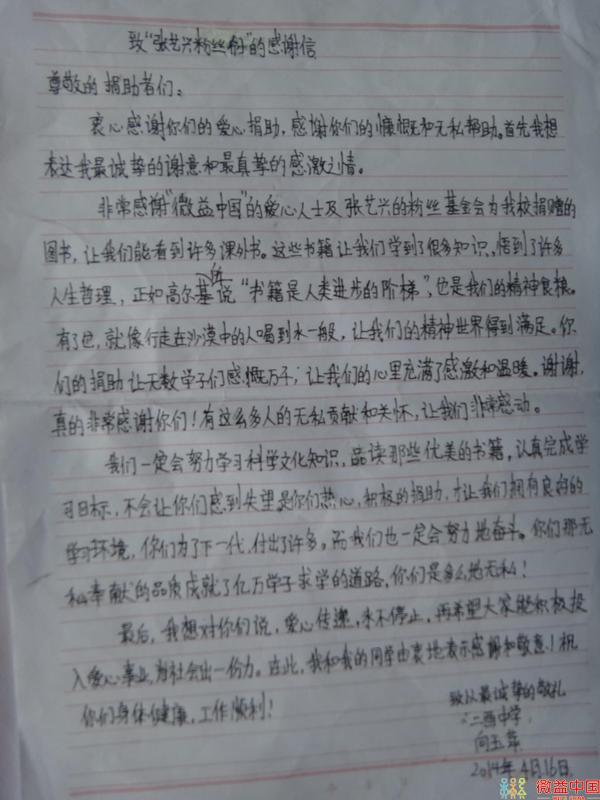 致“张艺兴粉丝们”的感谢信
尊敬的捐助者们:
衷心感谢你们的爱心捐助,感谢你们的慷慨和无私帮助。首先我想
表达我最诚挚的谢意和最真挚的感激之情。
非常感谢“微益中国”的爱心人士及张艺兴的粉丝基金会为我校捐赠的
图书,让我们能看到许多课外书。这些书籍让我们学到了很多知识、悟到了许多
人生哲理,正如高尔基所说“书籍是人类进步的阶梯”,也是我们的精神食粮。
有了它,就像行走在沙漠中的人喝到水一般,让我们的精神世界得到满足。你
们的捐助让无数学子们感慨万千,让我们的心里充满了感激和温暖。谢谢,
真的非常感谢你们!有这么多人的无私贡献和关怀,让我们非常感动。
我们一定会努力学习科学文化知识,品读那些优美的书籍,认真完成学
习目标,不会让你们感到失望是你们热心,积极的捐助,才让我们拥有良好的
学习环境,你们为了下一代,付出了许多。而我们也一定会努力地奋斗。你们那无
私奉献的品质成就了亿万学子求学的道路,你们是多么地无私!
最后,我想对你们说,爱心传递,永不停止,再希望大家能积极投
入爱心事业,为社会出一份力。在此,我和我的同学由衷地表示感谢和敬意!祝
你们身体健康,工作顺利!
致以最诚挚的敬礼
二酉中学
向玉萍
2014年4月16日
微益中国